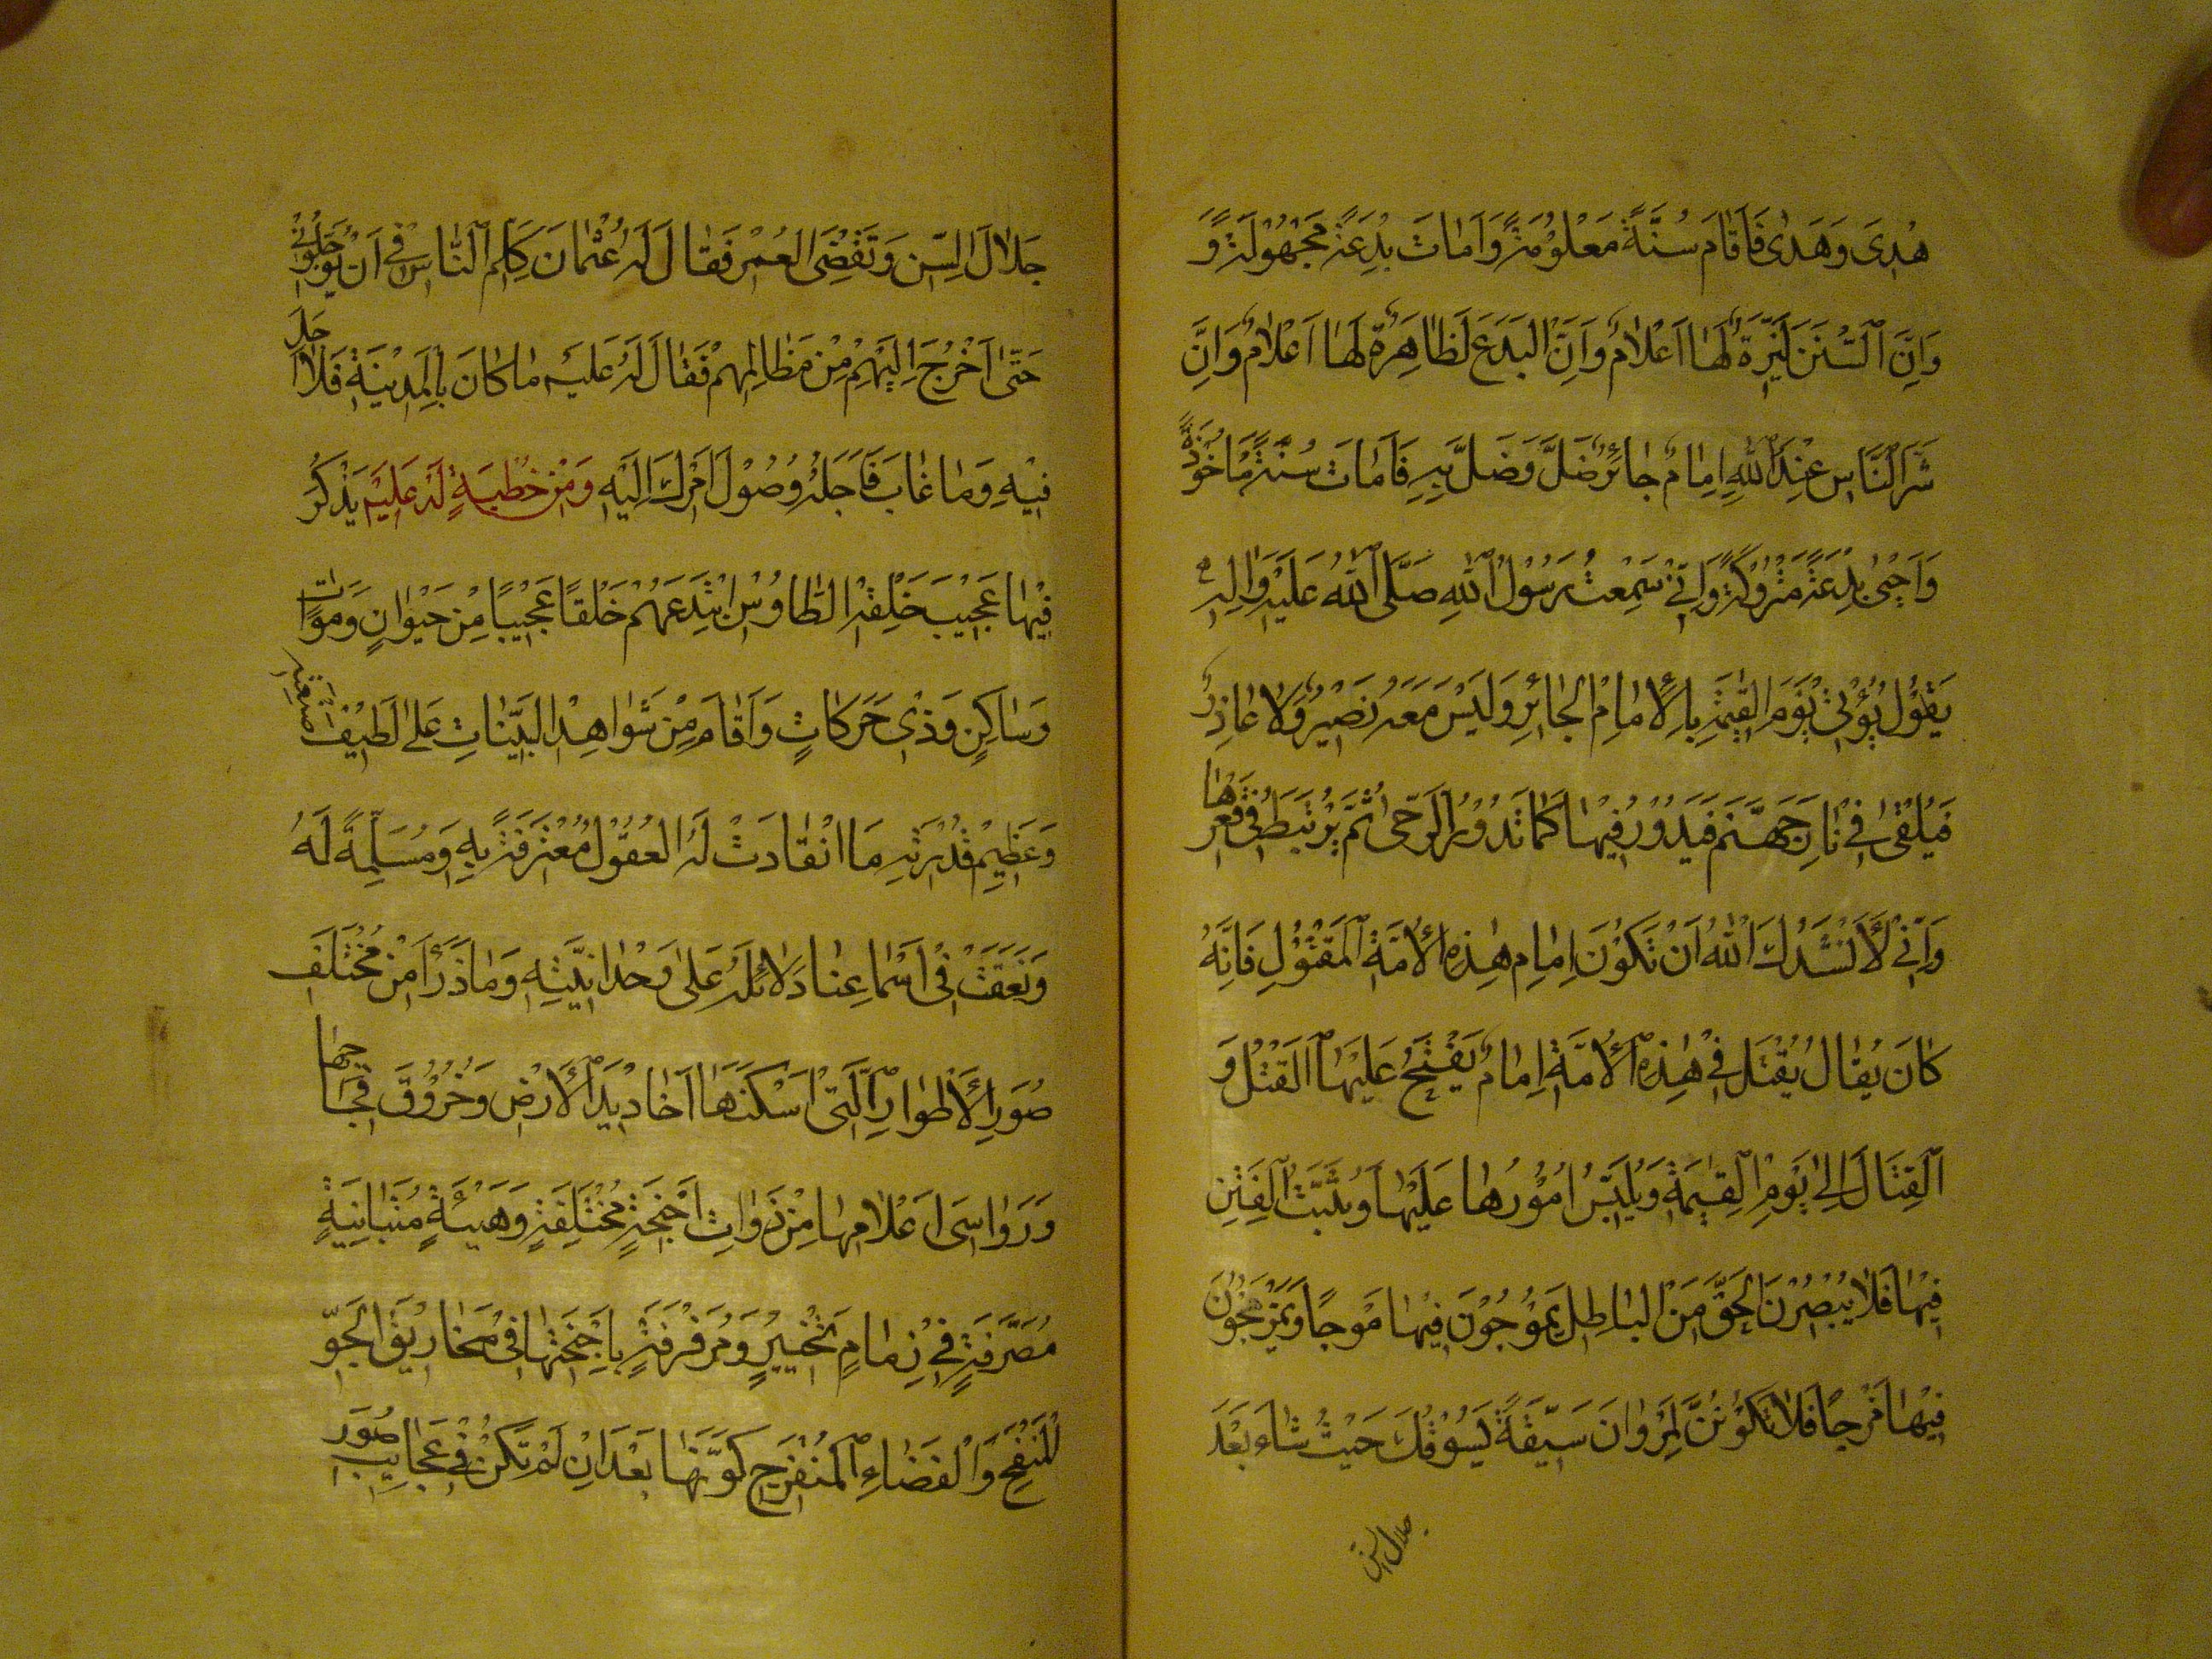 هُدِىَ وَهَدىٰ فَاَقامَ سُنَّةً مَعْلُوْمَةً وَاَماتَ بِدْعَةً مَجْهُوْلَةً وَ
وَاِنَّ السُّنَنَ لَنَيِّرَةٌ لَها اَعْلامٌ وَاِنَّ الْبِدَعَ لَظاهِرَةٌ لَها اَعْلامٌ وَاِنَّ
شَرَّ النَّاسِ عِنْدَ اللهِ اِمامٌ جائِرٌ ضَلَّ وَضُلَّ بِهِ فَاَماتَ سُنَّةً مَاخُوْذَةً
وَاَحْيىٰ بِدْعَةً مَتْرُوْكَةً وَاِنّى سَمِعْتُ رَسُوْلَ اللهِ صَلَّى اللهُ عَلَيْهِ وَالِهِ
يَقُوْلُ يُؤْتىٰ يَوْمَ الْقِيٰمَةِ بِالْاِمامِ الْجائِرِ وَلَيْسَ مَعَهُ نَصِيْرٌ وَلا عاذِرٌ
فَيُلْقىٰ فِىْ نارِ جَهَنَّمَ فَيَدُوْرُ فِيْها كَما تَدُوْرُ الرَّحىٰ ثُمَّ يَرْتَبِطُ فِىْ قَعْرِها
وَاِنّى لَاَنْشُدُكَ اللهَ اَنْ تَكُوْنَ اِمامَ هٰذِهِ الْاُمَّةِ الْمَقْتُوْلِ فَاِنَّهُ
كانَ يُقالُ يُقْتَلُ فِىْ هٰذِهِ الْاُمَّةِ اِمامٌ يَفْتَحُ عَلَيْهَا الْقَتْلَ وَ
الْقِتالَ اِلىٰ يَوْمِ الْقِيٰمَةِ وَيَلْبِسُ اُمُوْرَها عَلَيْها وَيُثَبِّتُ الْفِتَنَ
فِيْها فَلا يُبْصِرُوْنَ الْحَقَّ مِنَ الْباطِلِ يَمُوْجُوْنَ فِيْها مَوْجًا وَيَمْرُجُوْنَ
فِيْها مَرْجًا فَلا تَكُوْنَنَّ لِمَرْوانَ سَيِّقَةً يَسُوْقُكَ حَيْثُ شاءَ بَعْدَ
جلال السن
جَلالِ السِّنِ وَتَقَضِّى الْعُمُرِ فَقالَ لَهُ عُثْمانُ كَلِّمِ النَّاسَ فِىْ اَنْ يُؤَجِّلُوْنى
حَتّىٰ اَخْرُجَ اِلَيْهِمْ مِنْ مَظالِمِهِمْ فَقالَ لَهُ عَلَيْهِ ما كانَ بِالْمَدِيْنَةِ فَلا اَجَلَ
فِيْهِ وَما غابَ فَاَجَلُهُ وُصُوْلُ اَمْرِكَ اِلَيْهِ وَمِنْ خُطْبَةٍ لَهُ عَلَيْهِ يَذْكُرُ
فِيْها عَجِيْبَ خَلْقِهِ الطّاوُسَ اِبْتَدَعَهُمْ خَلْقًا عَجِيْبًا مِنْ حَيَوانٍ وَمَواتٍ
وَساكِنٍ وَذِىْ حَرَكاتٍ وَاَقامَ مِنْ شَواهِدِ الْبَيِّناتِ عَلىٰ لَطِيْفِ صَنْعَتِهِ
وَعَظِيْمِ قُدْرَتِهِ مَا انْقادَتْ لَهُ الْعُقُوْلُ مُعْتَرِفَةً بِهِ وَمُسَلِّمَةً لَهُ
وَنَعَقَتْ فِىْ اَسْماعِنا دَلائِلُهُ عَلىٰ وَحْدانِيَّتِهِ وَما ذَرَأَ مِنْ مُخْتَلِفِ
صُوَرِ الْاَطْوارِ الَّتِىْ اَسْكَنَها اَخادِيْدَ الْاَرْضِ وَخُرُوْقَ فِجاجِها
وَرَواسِىَ اَعْلامِها مِنْ ذَواتِ اَجْنِحَةٍ مُخْتَلِفَةٍ وَهَيْئَةٍ مُتَبايِنَةٍ
مُصَرَّفَةٍ فِىْ زِمامِ تَخْيِيْرٍ وَمُرَفْرِفَةٍ بِاَجْنِحَتِها فِىْ مَخارِيْقِ الْجَوِّ
الْمُنْفَتِحِ وَالْفَضاءِ الْمُنْفَرِجِ كَوَّنَها بَعْدَ اِنْ لَمْ تَكُنْ فِىْ عَجايِبِ صُوَرِ